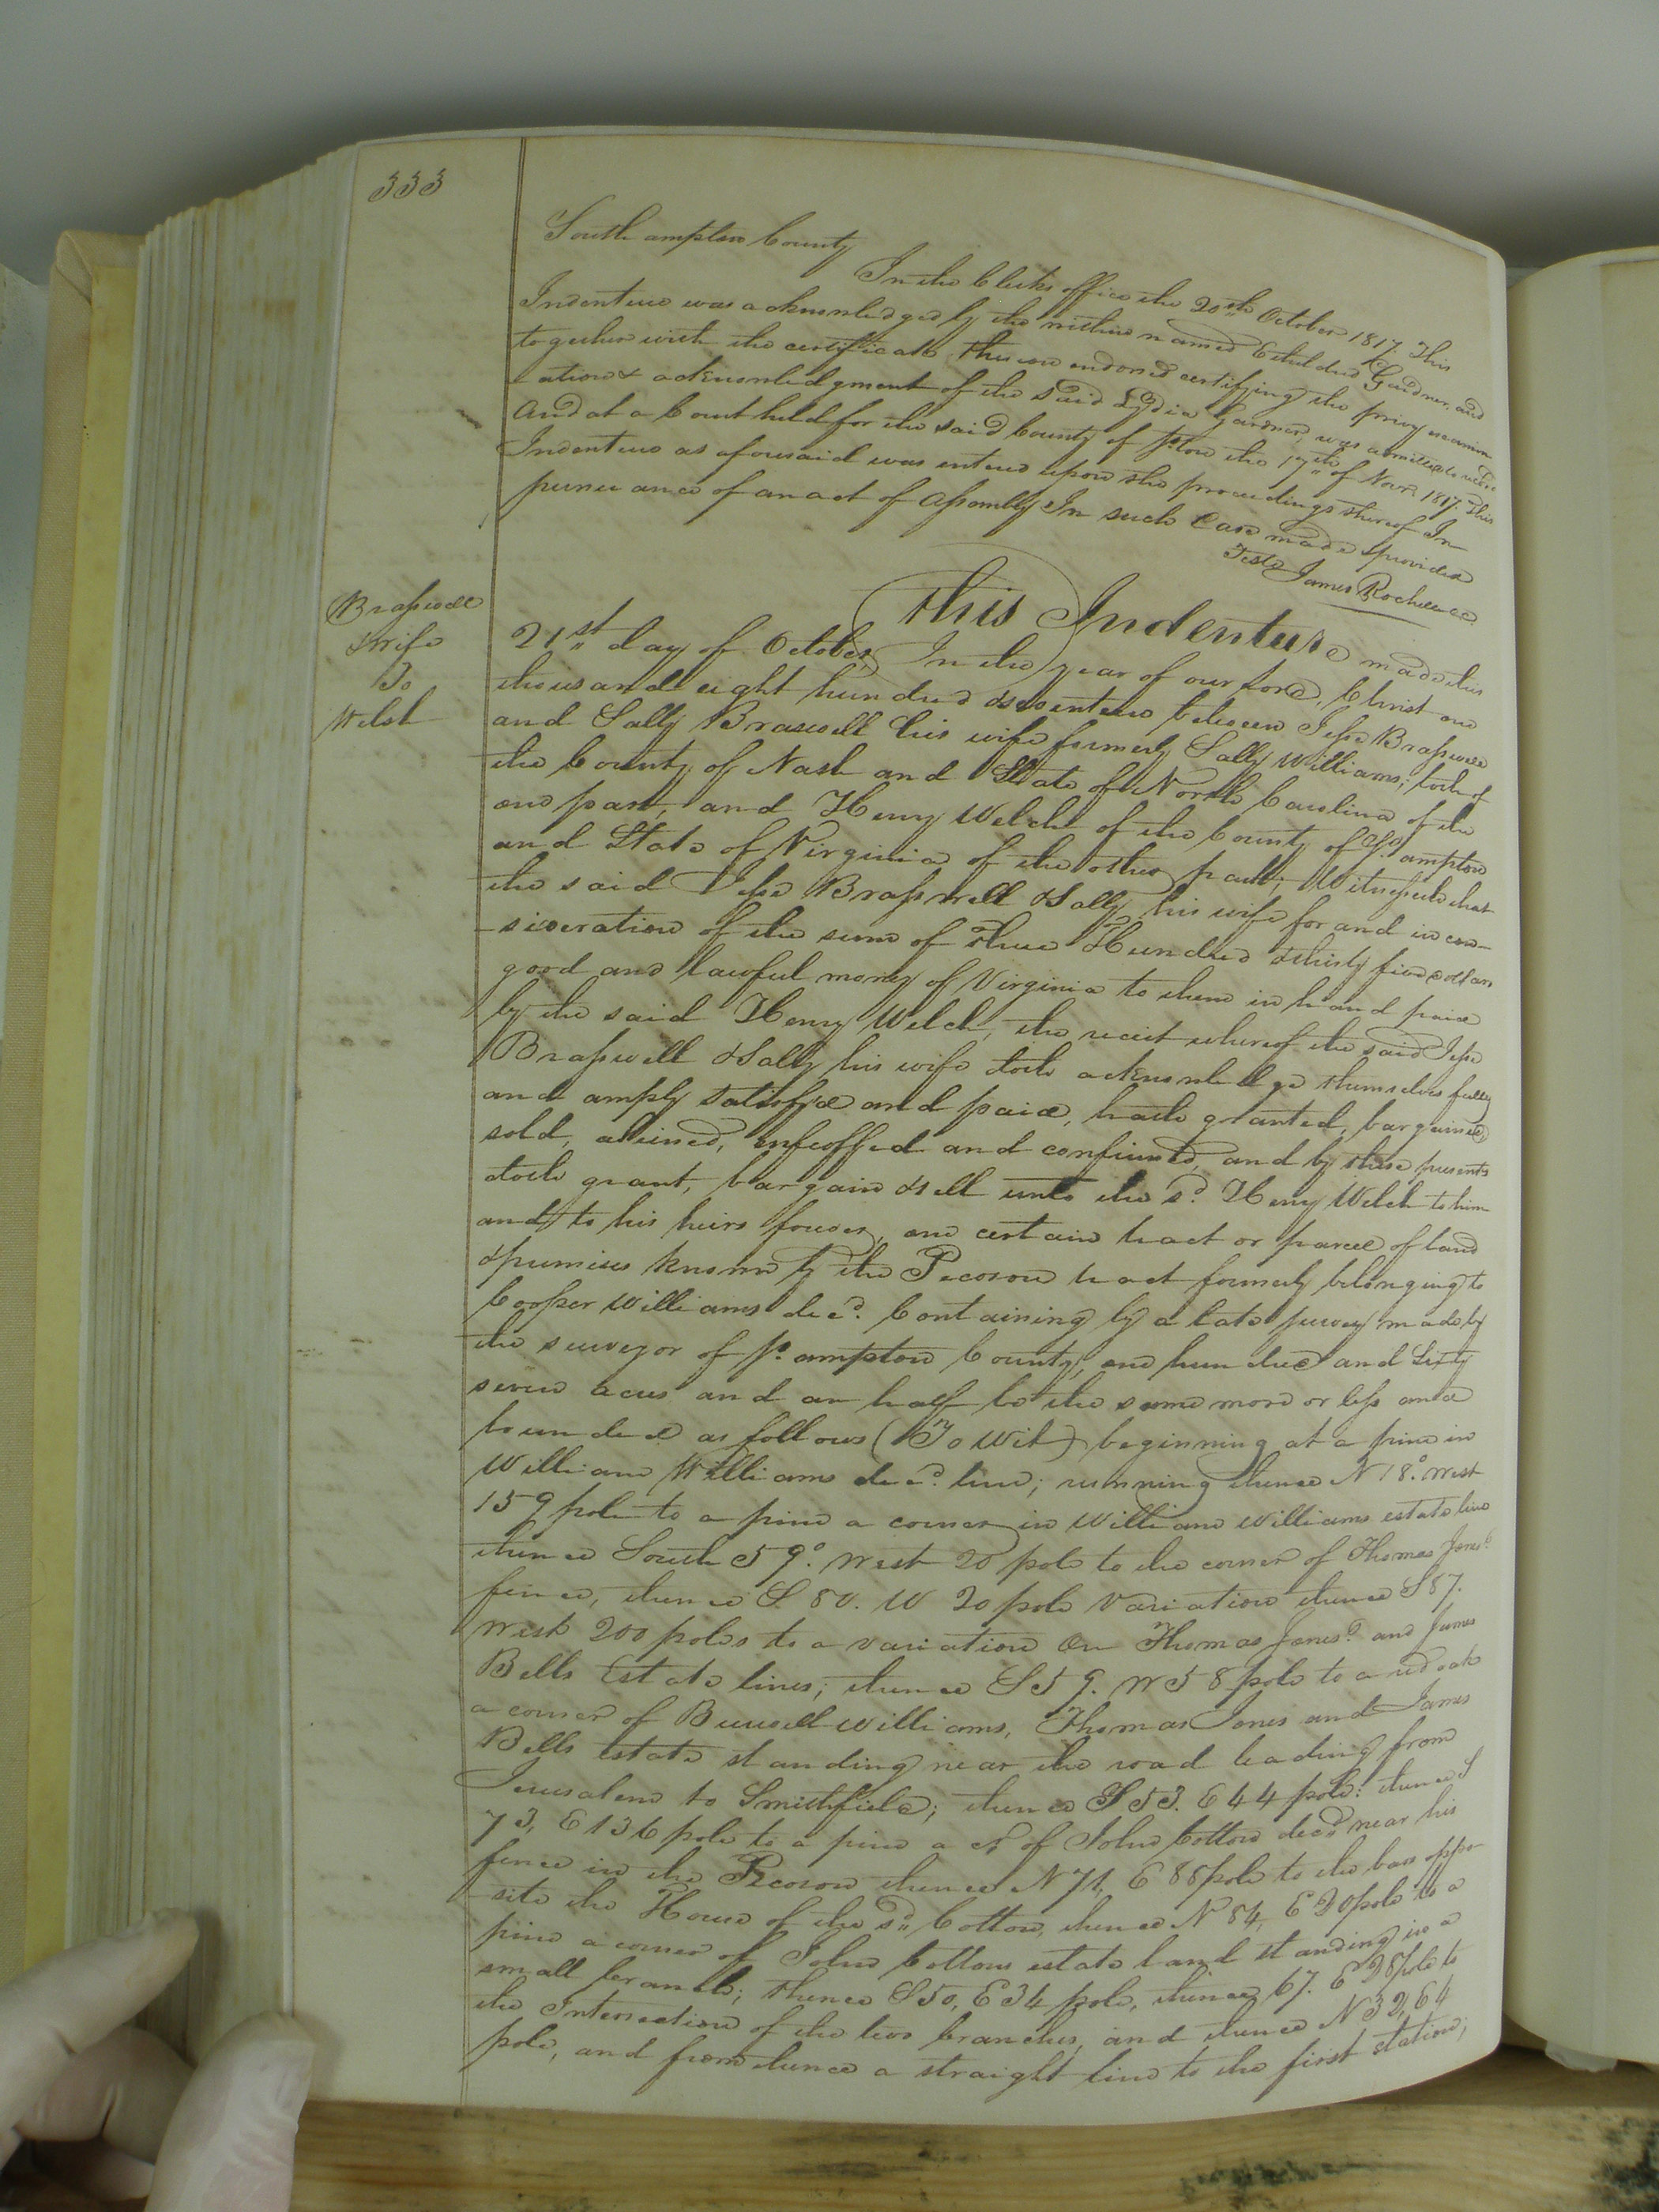 333
Southampton County
In the Clerks office the 20th October 1817 This
Indenture was acknowledged by the within named Etheldred Gardner, and
together with the certificate thereon endorsed certifying the privy examin
ation & acknowledgment of the said Lydia Gardner, was admitted to record
And at a Court held for the said County of So.ton the 17th of Novr. 1817. This
Indenture as aforesaid was entered upon the proceedings thereof In
pursuance of an act of Assembly In such Case made & provided
Teste James Rochelle cc
Brasswell
& wife
To
Welsh
This Indenture made this
21st day of October, In the year of our Lord, Christ one
thousand eight hundred & seventeen between Jesse Brasswell
and Sally Braswell his wife formerly Sally Williams; both of
the County of Nash and State of North Carolina of the
one part, and Henry Welch of the County of So. ampton
and State of Virginia of the other part; Witnesseth that
the said Jesse Brasswell & Sally his wife for and in con-
-sideration of the sum of Three Hundred & thirty five dollars
good and lawful money of Virginia to them in hand paid
by the said Henry Welch, the receit whereof the said Jesse
Brasswell & Sally his wife doth acknowledge themselves fully
and amply satisfyed and paid, hath granted, bargained
sold, aliened, enfeoffed and confirmed, and by these presents
doth grant, bargain & sell unto the sd. Henry Welch to him
and to his heirs forever, one certain tract or parcel of land
& premises known by the Pocoson tract formerly belonging to
Cooper Williams decd. Containing by a late survey made by
the surveyor of So. ampton County, one hundred and Sixty
seven acres and an half be the same more or less and
bounded as follows (To wit) beginning at a pine in
William Williams decd. line; running thence N 18° west
159 pole to a pine a corner in William Williams estate line
thence South 59° West 20 pole to the corner of Thomas Jones's
fence, thence S. 80. W 20 pole variation thence S 87.
West 200 poles to a variation On Thomas Jones's and James
Bells Estate lines; thence S 59. W 58 pole to a red oak
a corner of Burwell Williams, Thomas Jones and James
Bells Estate standing near the road leading from
Jerusalem to Smithfield; thence S 53. E 44 pole: thence S
73, E 136 pole to a pine a of John Cotton decd near his
fence in the Pocoson thence N 71, E 88 pole to the bars oppo
site the House of the sd. Cotton, thence N 84, E 20 pole to a
pine a corner of John Cottons estate land standing in a
small branch; thence S 50, E 34 pole, thence 67. E 28 pole to
the Intersection of the two branches, and thence N 32, 64
pole, and from thence a straight line to the first station;